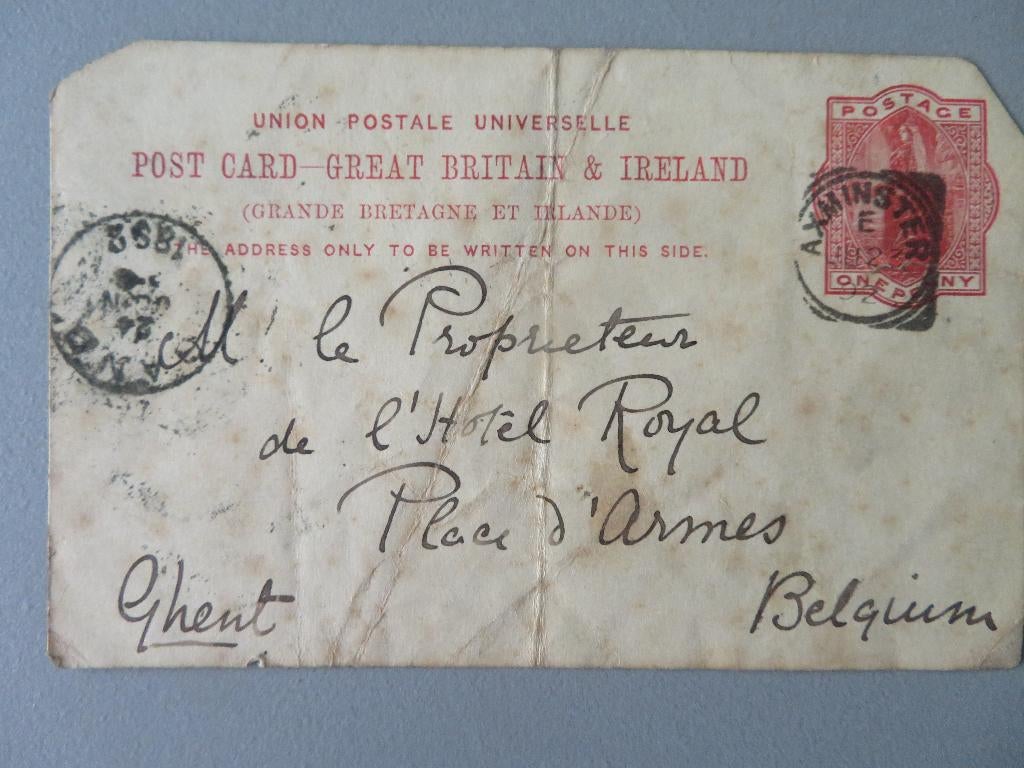 UNION POSTALE UNIVERSELLE
POST CARD—GREAT BRITAIN & IRELAND
(GRANDE BRETAGNE ET IRLANDE)
THE ADDRESS ONLY TO BE WRITTEN ON THIS SIDE.
POSTAGE
ONE PENNY
AXMINSTER
E
92
GAND
24
1892
M. le Proprieteur
de l'Hotêl Royal
Place d'Armes
Ghent
Belgium